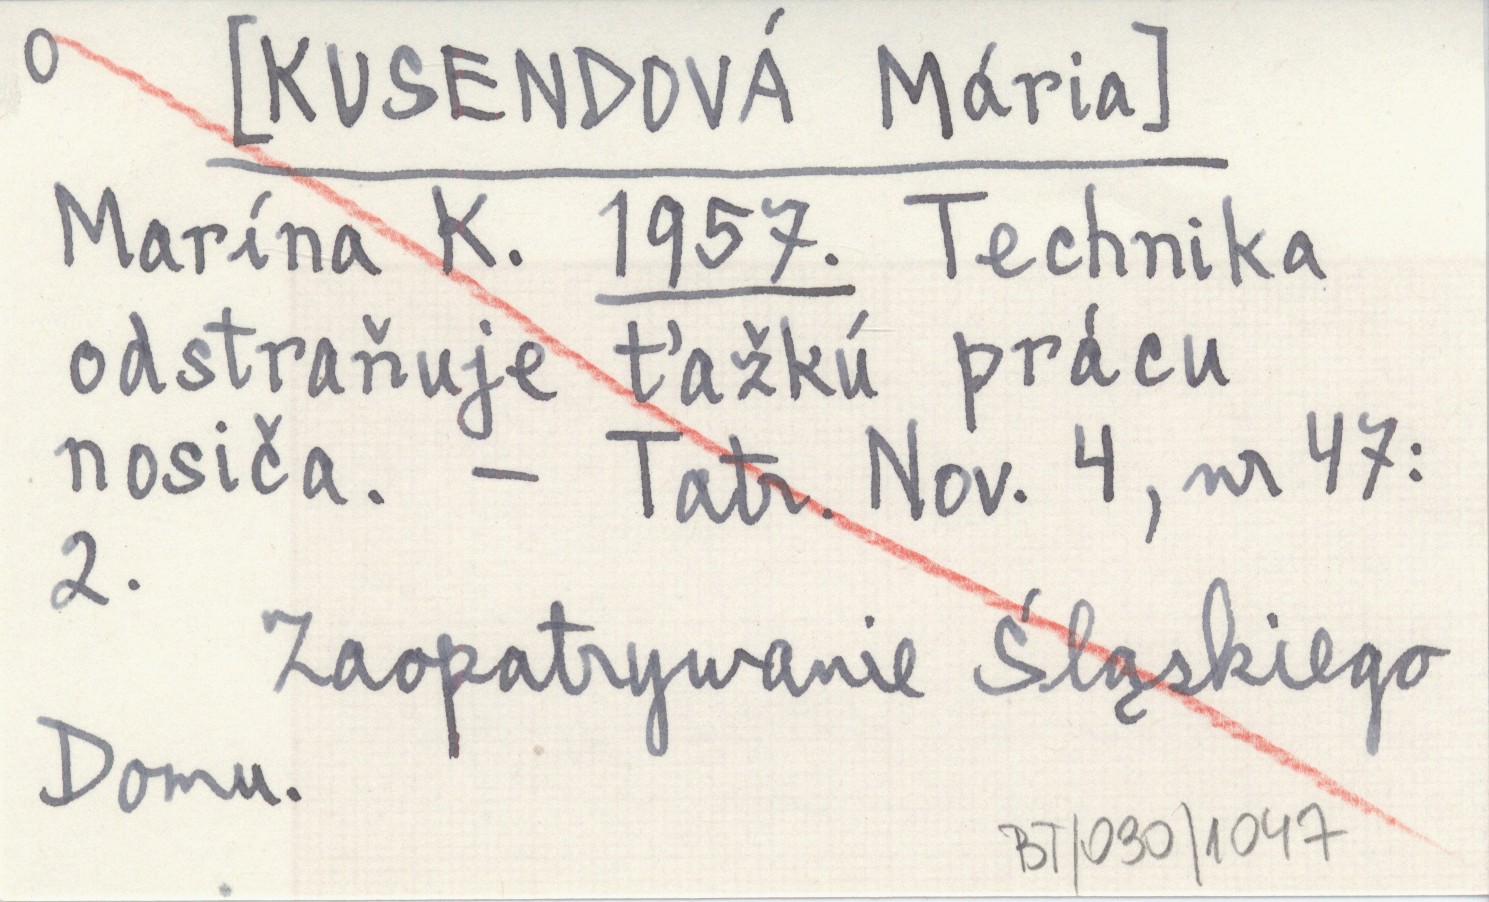 0 [KUSENDOVÁ Mária]
Marína K. 1957. Technika
odstraňuje ťažkú prácu
nosiča. – Tatr. Nov. 4, nr 47:
2.
Zaopatrywanie Śląskiego
Domu.
BT/030/1047